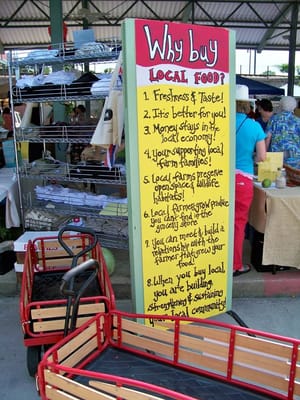 Why buy
LOCAL FOOD?
1. Freshness & Taste!
2. It's better for you!
3. Money stays in the
local economy!
4. Your supporting local
farm families!
5. Local farms preserve
open space & wildlife
habitats!
6. Local farmers grow produce
you don't find in the
grocery store
7. You can meet & build a
relationship with the
farmer that grew your
food!
8. When you buy local
you are building,
strengthening & sustaining
your local community!